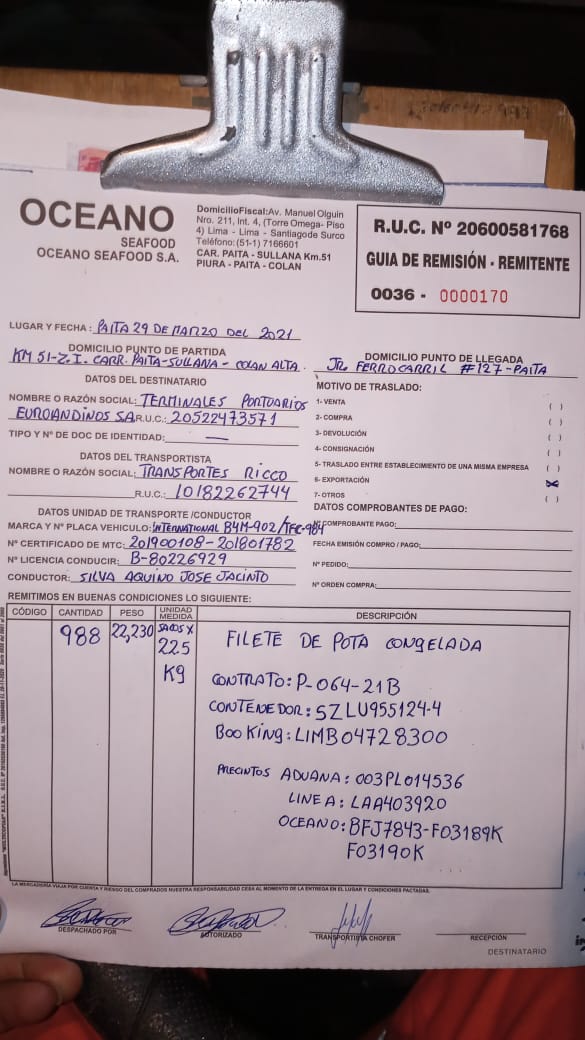 OCEANO
SEAFOOD
OCEANO SEAFOOD S.A.
DomicilioFiscal:Av. Manuel Olguin
Nro. 211, Int. 4, (Torre Omega- Piso
4) Lima - Lima - Santiagode Surco
Teléfono:(51-1) 7166601
CAR. PAITA - SULLANA Km.51
PIURA - PAITA - COLAN
R.U.C. Nº 20600581768
GUIA DE REMISIÓN - REMITENTE
0036 - 0000170
LUGAR Y FECHA : PAITA 29 DE MARZO DEL 2021
DOMICILIO PUNTO DE PARTIDA
KM 51-Z.I. CARR. PAITA-SULLANA - COLAN ALTA.
DOMICILIO PUNTO DE LLEGADA
JR. FERROCARRIL #127-PAITA
DATOS DEL DESTINATARIO
NOMBRE O RAZÓN SOCIAL: TERMINALES PORTUARIOS
EUROANDINOS SA R.U.C.: 20522473571
TIPO Y Nº DE DOC DE IDENTIDAD: —
MOTIVO DE TRASLADO:
1- VENTA ( )
2- COMPRA ( )
3- DEVOLUCIÓN ( )
4- CONSIGNACIÓN ( )
5- TRASLADO ENTRE ESTABLECIMIENTO DE UNA MISMA EMPRESA ( )
6- EXPORTACIÓN (X)
7- OTROS ( )
DATOS DEL TRANSPORTISTA
NOMBRE O RAZÓN SOCIAL: TRANSPORTES RICCO
R.U.C.: 10182262744
DATOS UNIDAD DE TRANSPORTE /CONDUCTOR
MARCA Y Nº PLACA VEHICULO: INTERNATIONAL B4M-902/TFC-984
Nº CERTIFICADO DE MTC: 201900108-201801782
Nº LICENCIA CONDUCIR: B-80226929
CONDUCTOR: SILVA AQUINO JOSE JACINTO
DATOS COMPROBANTES DE PAGO:
COMPROBANTE PAGO:
FECHA EMISIÓN COMPRO / PAGO:
Nº PEDIDO:
Nº ORDEN COMPRA:
REMITIMOS EN BUENAS CONDICIONES LO SIGUIENTE:
CÓDIGO CANTIDAD PESO UNIDAD MEDIDA DESCRIPCIÓN
988 22,230 SACOS X
22.5
Kg
FILETE DE POTA CONGELADA
CONTRATO: P-064-21B
CONTENEDOR: SZLU955124-4
BooKing: LIMB04728300
PRECINTOS ADUANA: 003PL014536
LINEA: LAA403920
OCEANO: BFJ7843-F03189K
F03190K
LA MERCADERÍA VIAJA POR CUENTA Y RIESGO DEL COMPRADOS NUESTRA RESPONSABILIDAD CESA AL MOMENTO DE LA ENTREGA EN EL LUGAR Y CONDICIONES PACTADAS.
DESPACHADO POR
AUTORIZADO
TRANSPORTISTA CHOFER
RECEPCIÓN
DESTINATARIO